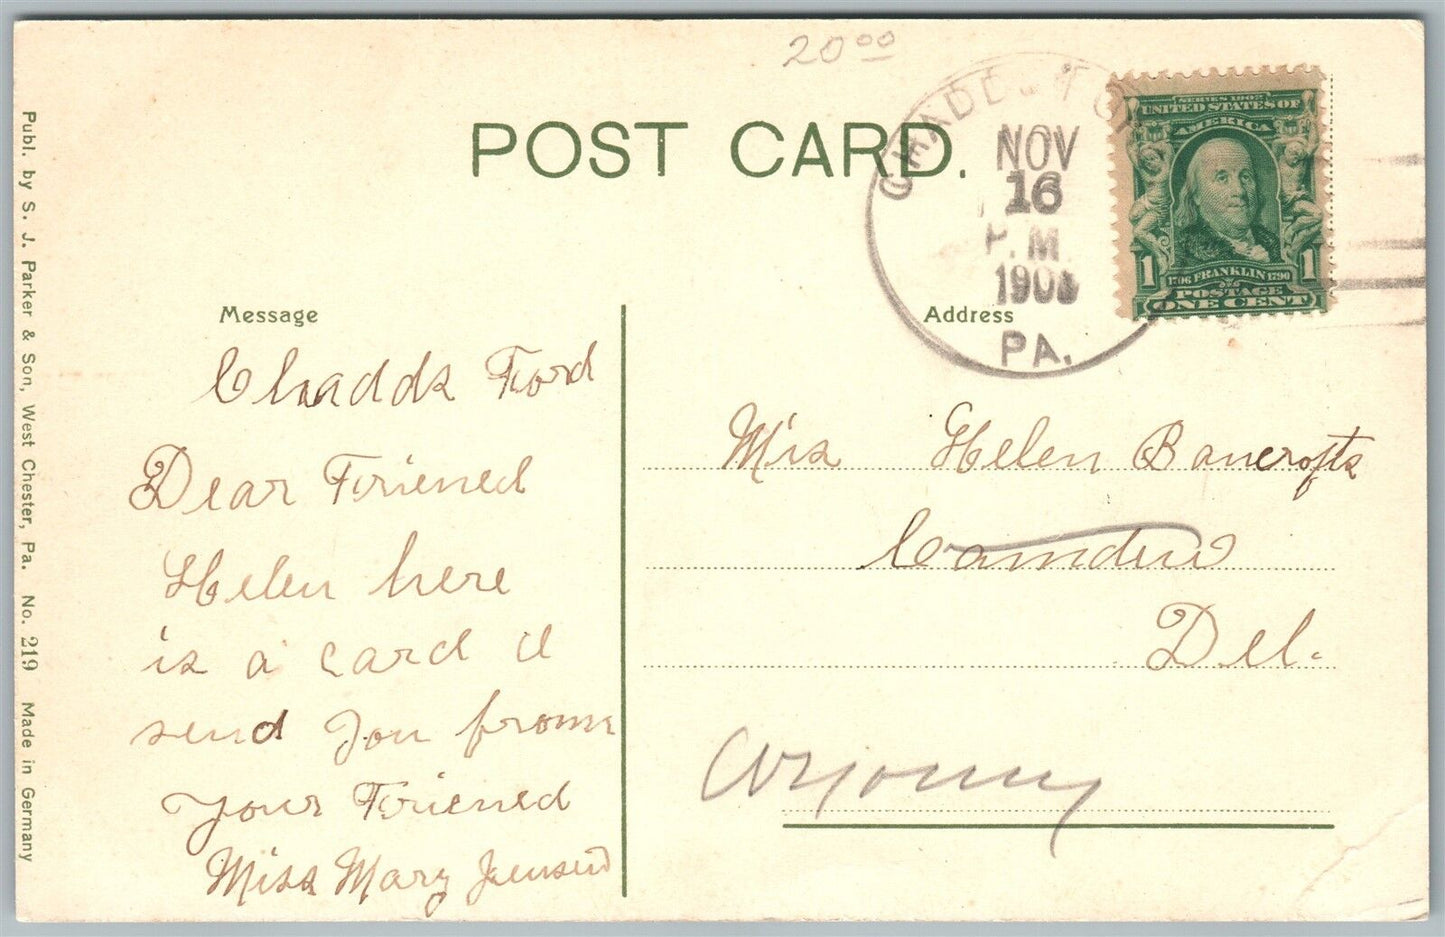 20 00
POST CARD.
CHADDS FO
NOV
16
P.M
190
PA.
SERIES 1902
UNITED STATES OF
AMERICA
1 1706 FRANKLIN 1790 1
POSTAGE
ONE CENT
Message
Chadds Ford
Dear Friened
Helen here
is a card I
send you from
your Friened
Miss Mary
Address
Miss Helen Bancrofts
Camden
Del.
Publ. by S. J. Parker & Son, West Chester, Pa. No. 219 Made in Germany